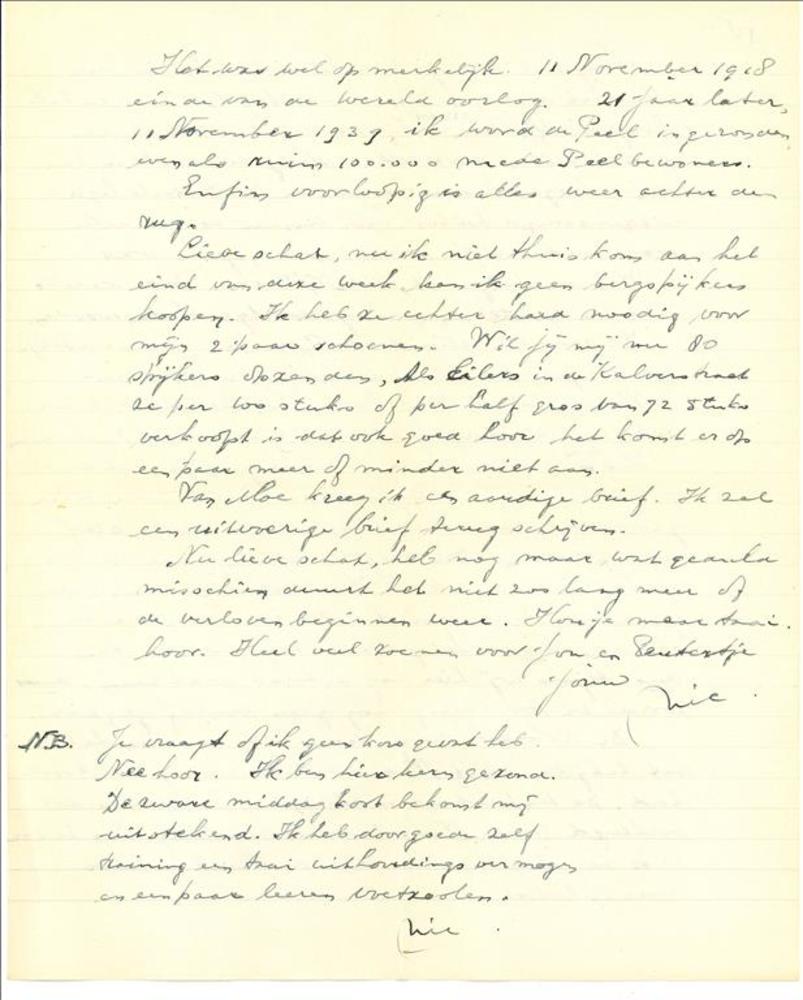 Het was wel op merkelijk. 11 November 1918
einde van de wereld oorlog. 21 jaar later,
11 November 1939, ik word de Peel ingezonden
evenals ruim 100.000 mede Peelbewoners.
Enfin voorloopig is alles weer achter den
rug.
Lieve schat, nu ik niet thuis kom aan het
eind van deze week kan ik geen bergspijkers
koopen. Ik heb ze echter hard noodig voor
mijn 2 paar schoenen. Wil jij mij nu 80
spijkers opzenden, Als Eilers in de Kalverstraat
ze per 100 stuks of per half gros van 72 stuks
verkoopt is dat ook goed hoor het komt er op
een paar meer of minder niet aan.
Van Moe kreeg ik een aardige brief. Ik zal
een uitvoerige brief terug schrijven.
Nu lieve schat, heb nog maar wat geduld
misschien duurt het niet zoo lang meer of
de verloven beginnen weer. Hou je maar taai
hoor. Heel veel zoenen voor jou en
jouw Nic.
N.B. Je vraagt of ik geen kou gevat heb.
Nee hoor. Ik ben hier kern gezond.
De zware middag kost bekomt mij
uitstekend. Ik heb door goede zelf
training een taai uithoudings vermogen
en een paar leeren voetzoolen.
Nic.